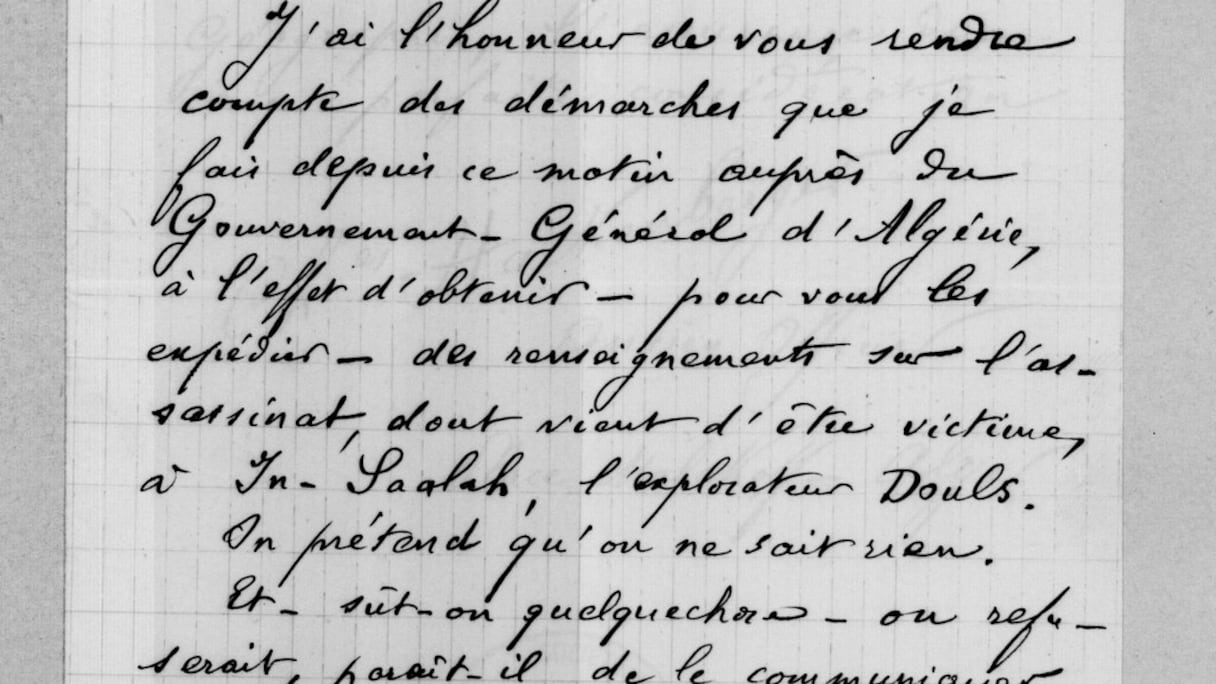 J'ai l'honneur de vous rendre
compte des démarches que je
fais depuis ce matin auprès du
Gouvernement-Général d'Algérie,
à l'effet d'obtenir — pour vous les
expédier — des renseignements sur l'as-
sassinat, dont vient d'être victime,
à In-Saalah, l'explorateur Douls.
On prétend qu'on ne sait rien.
Et- sût-on quelquechose — on refu-
serait, paraît-il de le communiquer